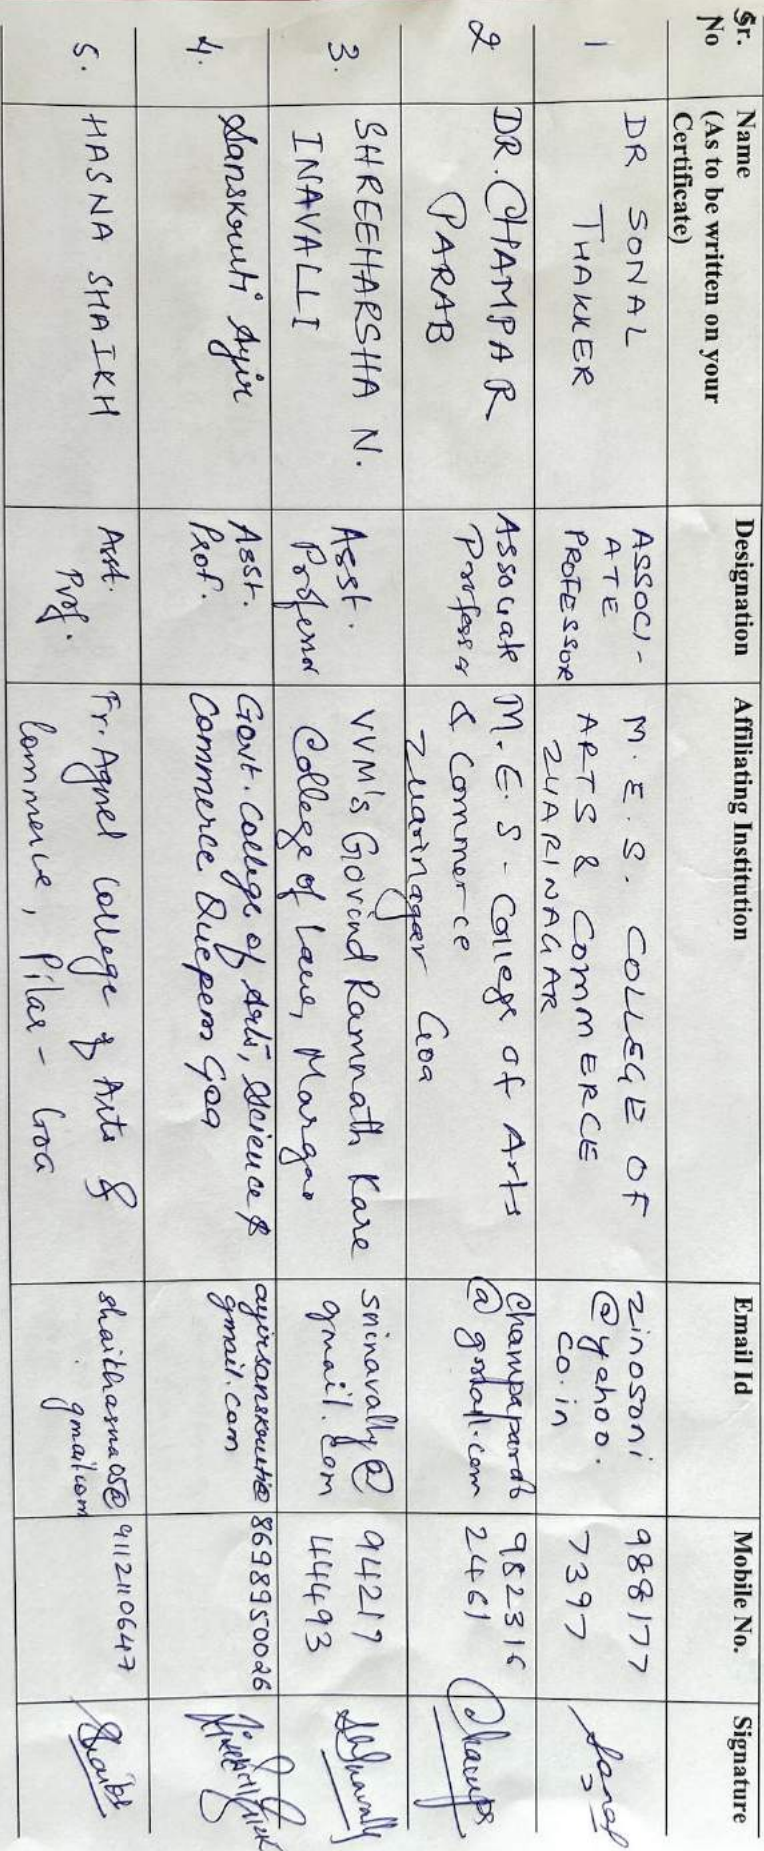 Sr. No
Name
(As to be written on your
Certificate)
Designation
Affiliating Institution
Email Id
Mobile No.
Signature
1
DR SONAL
THAKKER
ASSOCI-
ATE
PROFESSOR
M.E.S. COLLEGE OF
ARTS & COMMERCE
ZUARINAGAR
zinosoni
@yahoo.
co.in
988177
7397
Sonal
2
DR. CHAMPA R
PARAB
Associate
Professor
M.E.S - College of Arts
& Commerce
Zuarinagar Goa
Champaparab
@gmail.com
982316
2461
3.
SHREEHARSHA N.
INAVALLI
Asst.
Professor
VVM's Govind Ramnath Kare
College of Law, Margao
sninavally@
gmail.com
94219
44493
4.
Sanskruti Ayir
Asst.
Prof.
Govt. College of Arts, Science &
Commerce Quepem Goa
ayirsanskruti@
gmail.com
8698950026
5.
HASNA SHAIKH
Asst.
Prof.
Fr. Agnel College of Arts &
Commerce, Pilar - Goa
shaikhasna05@
gmail.com
9112110647